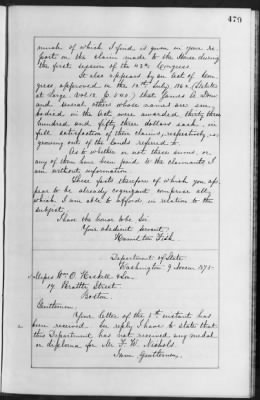 479
much of which I find is given in your re-
port on the claim made to the House during
the first session of the 43d Congress.
It also appears by an act of Con-
gress approved in the 12th July 1862 (Statutes
at Large Vol 12 p. 540) that James A. Dow
and several others whose names are em-
bodied in the act were awarded thirty three
hundred and fifty three dollars each, in
full satisfaction of their claims, respectively, is
growing out of the bonds referred to.
As to whether or not these sums, or
any of them have been paid to the claimants, I
am without information.
These facts therefore of which you ap-
pear to be already cognizant comprise all,
which I am able to afford, in relation to the
subject.
I have the honor to be Sir
Your obedient servant,
Hamilton Fish
Department of State
Washington 9 November 1875.
Wm. O. Haskell & Son
19 Brattle Street
Boston
Gentlemen,
Your letter of the 5th instant has
been received. In reply I have to state that
this Department has not received any medal
or diploma for Mr F. W. Nichols
I am Gentlemen,